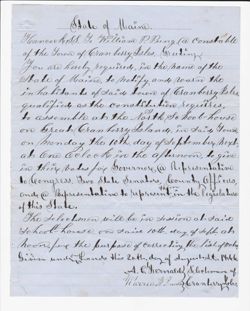 State of Maine
Hancock SS. To William P. Bunker a Constable
of the Town of Cranberry Isles, Greeting.
You are hereby required, in the name of the
State of Maine, to notify and warn the
inhabitants of said town of Cranberry Isles,
qualified as the constitution requires,
to assemble at the North School house
on Great Cranberry Island, in said Town
on Monday the 10th day of September Next,
at One o'clock in the afternoon, to give
in their votes for Governor, a Representative
to Congress, Senators, County Officers,
and a Representative to represent in the Legislature
of this State.
The selectmen will be in session at said
School house on said 10th day of Sept. at
noon, for the purpose of correcting the list of voters
Given under hands this 20th day of August
A. C. Fernald Selectmen of
Cranberry Isles